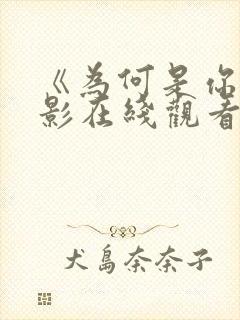 《為何是你
影在綫觀看
犬島奈奈子